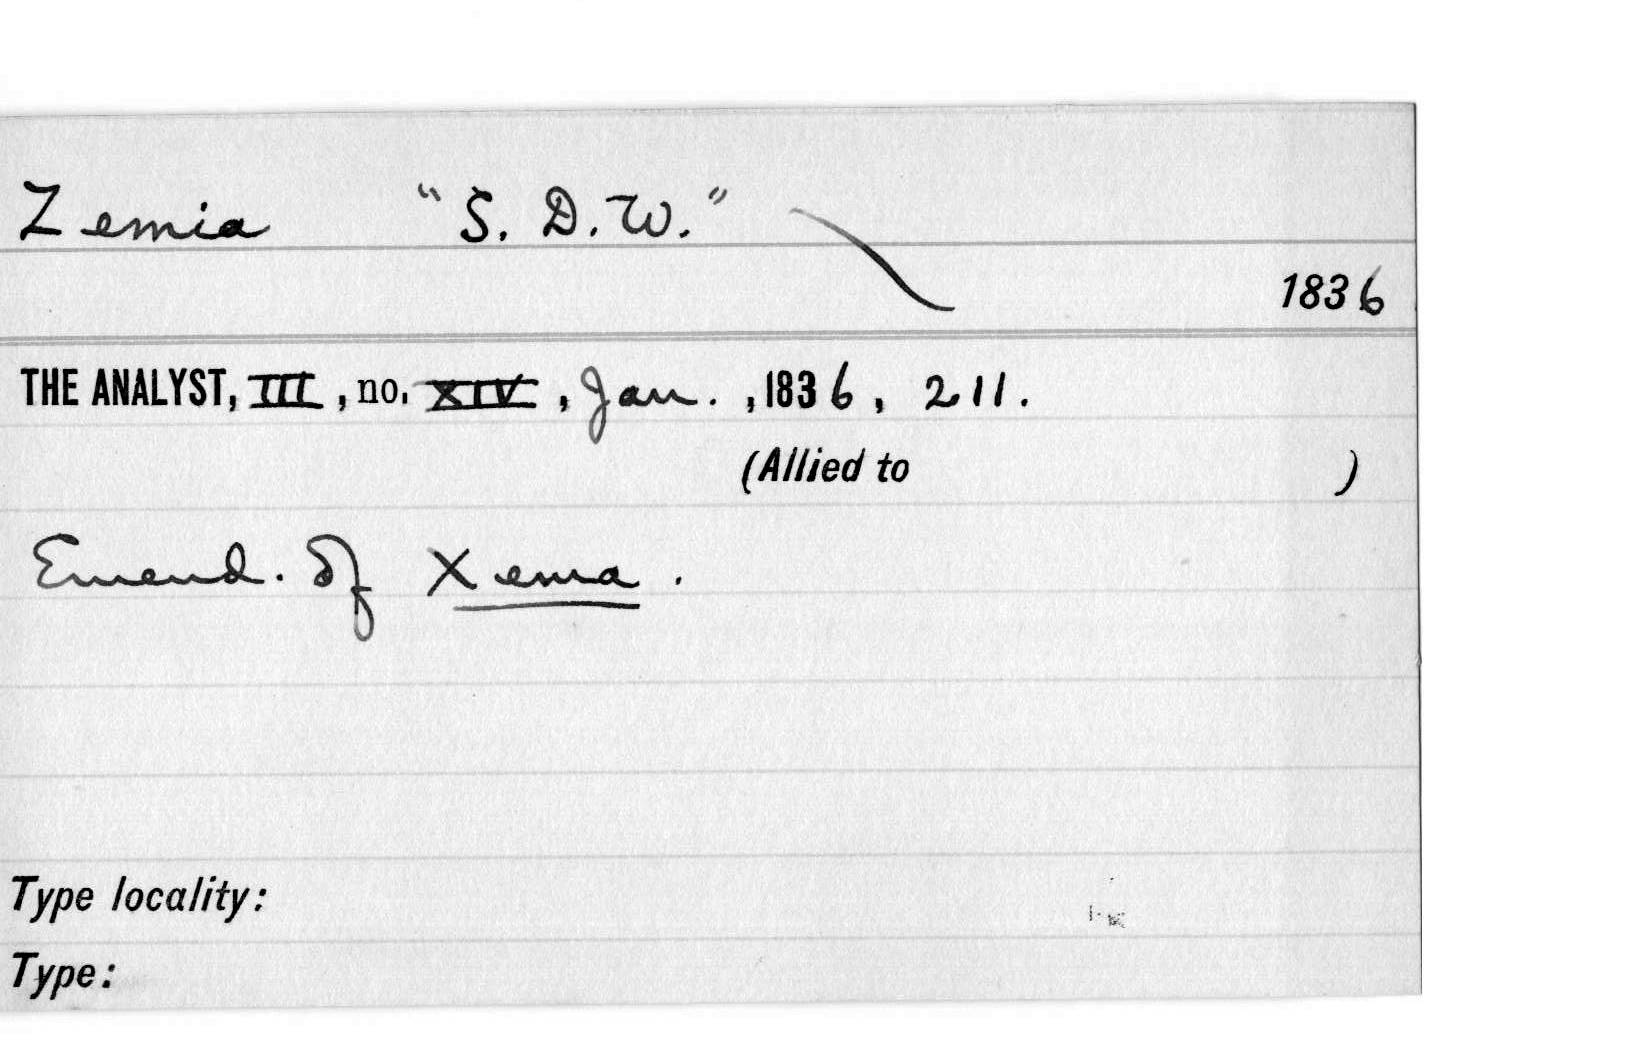 Zemia "S. D. W."
1836
THE ANALYST, III, no. XIV, Jan., 1836, 211.
(Allied to )
Emend. of Xema.
Type locality:
Type: